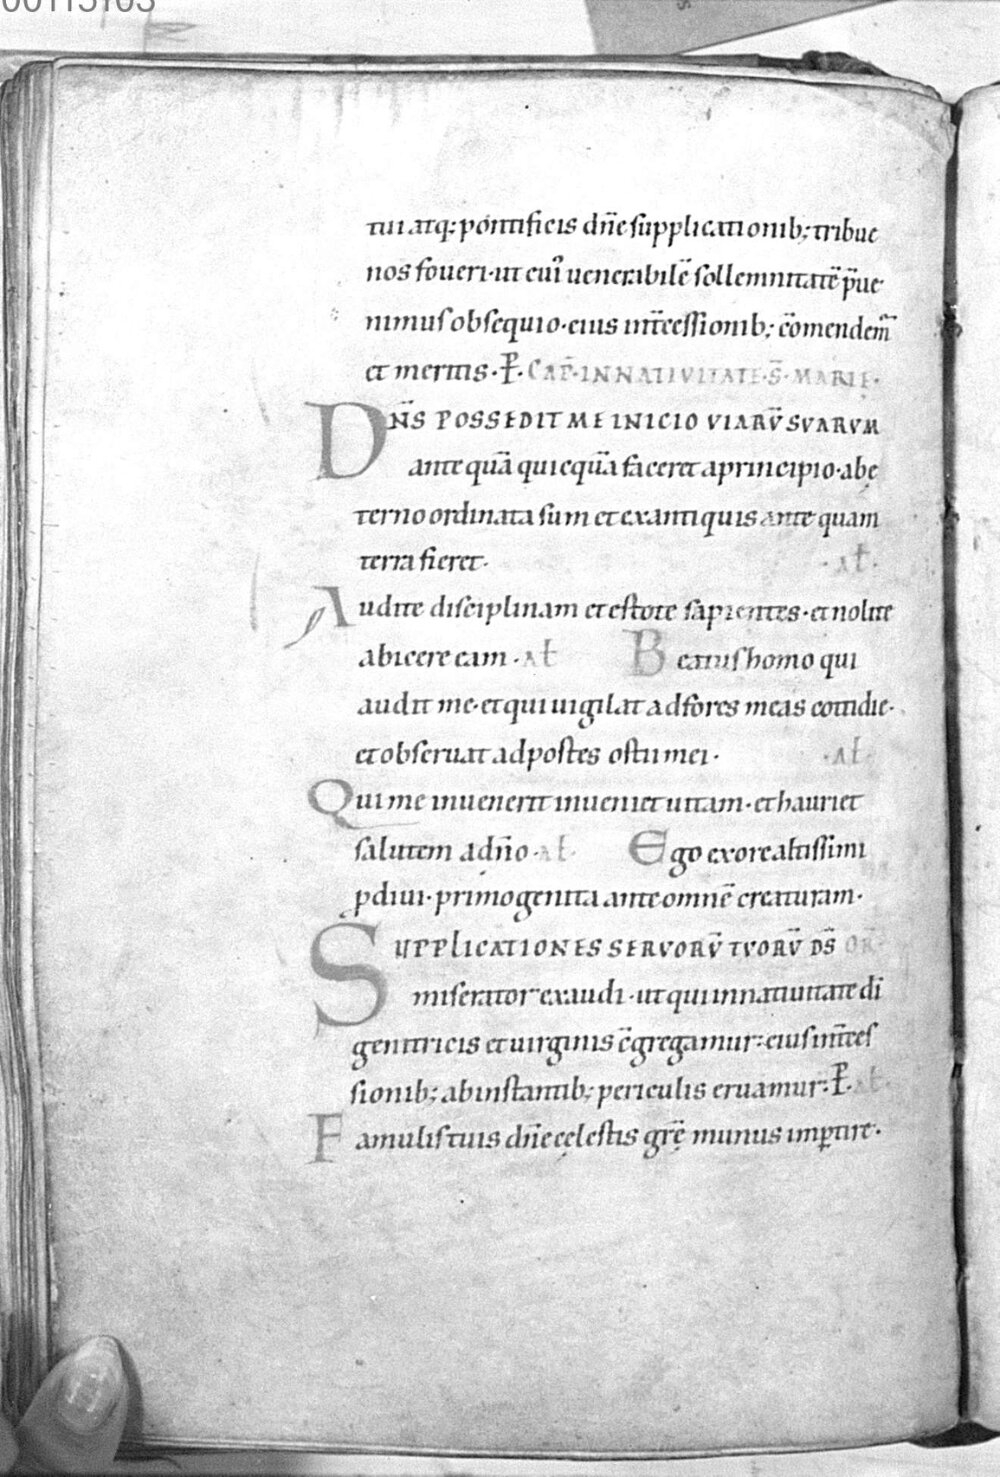 00115163
tui atq; pontificis dn̄e supplicationib; tribue
nos foveri· ut cuı᷒ uenerabilē sollemnitatē p̄ue
nimus obsequio· eius int̄cessionib; c̄omendem̄
et meritis· P̱· CAP̄· IN NATIVITATE· S̄· MARIE·
DN̄S POSSEDIT ME INICIO VIARV̄ SVARVM
ante quā quicquā faceret aprincipio· abę
terno ordinata sum et exantiquis ante quam
terra fieret· ·Aƚ·
Audite disciplinam et estote sapientes· et nolite
abicere eam· Aƚ Beatus homo qui
audit me· et qui uigilat adfores meas cottidie·
et obseruat adpostes ostii mei· ·Aƚ·
Qui me inuenerit inueniet uitam· et hauriet
salutem adn̄o· Aƚ· Ego exore altissimi
pdiui· primogenita ante omnē creaturam·
SUPPLICATIONES SERVORV̄ TVORV̄ DS̄ OR̄·
miserator exaudi· ut qui innatiuitate dī
genitricis et uirginis c̄gregamur: eius int̄ces
sionib; abinstantib; periculis eruamur· P̱· Aƚ·
Famulis tuis dn̄e cęlestis grę̄ munus imp̱tire·